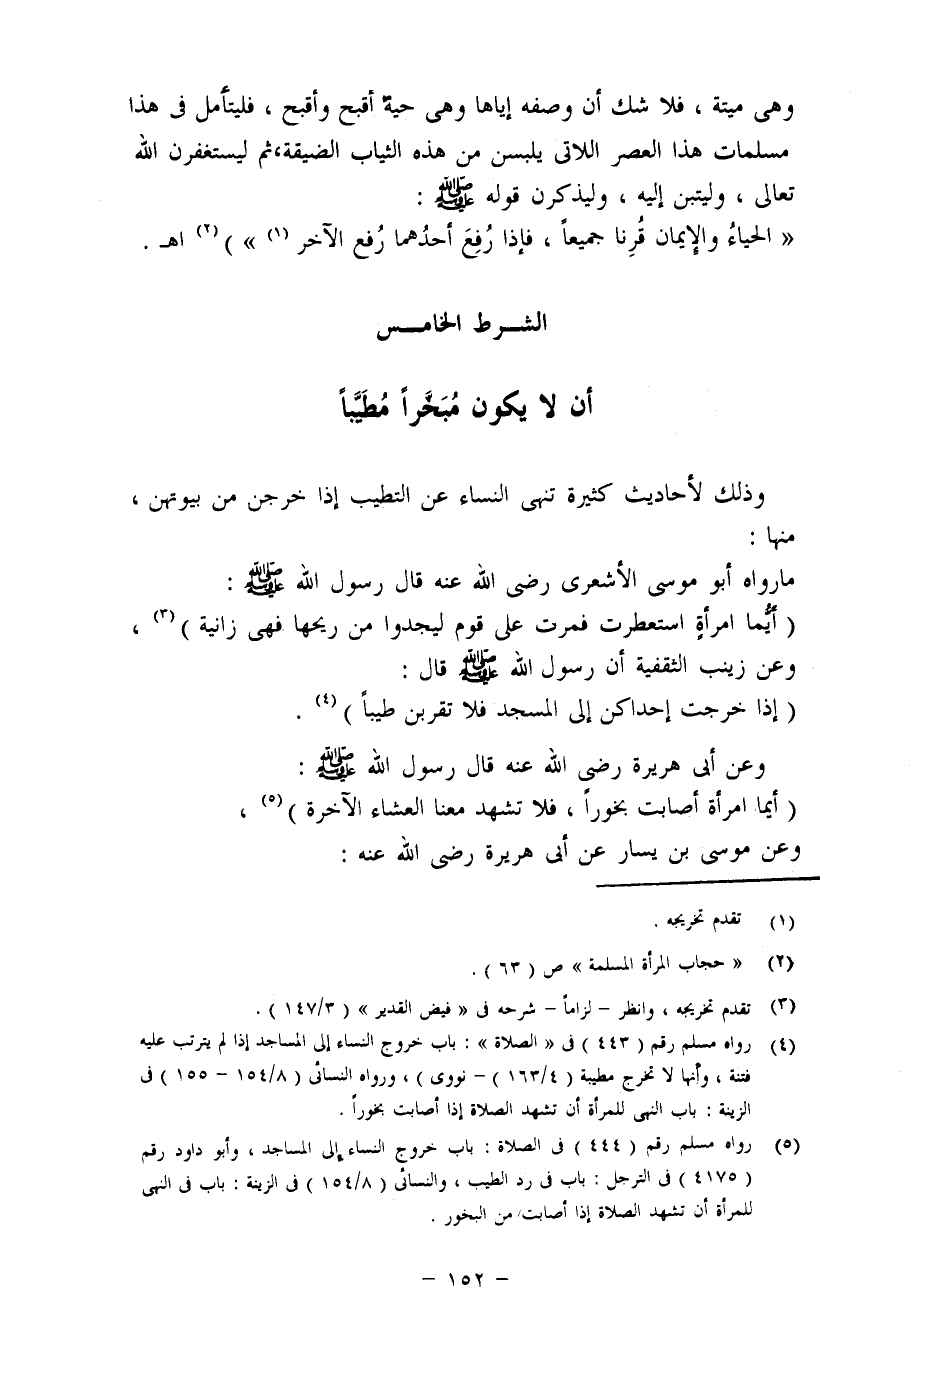 وهى ميتة ، فلا شك أن وصفه إياها وهى حية أقبح وأقبح ، فليتأمل فى هذا
مسلمات هذا العصر اللاتى يلبسن من هذه الثياب الضيقة،ثم ليستغفرن الله
تعالى ، وليتبن إليه ، وليذكرن قوله ﷺ :
« الحياءُ والإيمان قُرِنا جميعاً ، فإذا رُفِعَ أحدُهما رُفع الآخر (١) » )(٢) اهـ .
الشرط الخامس
أن لا يكون مُبَخَّراً مُطَيَّباً
وذلك لأحاديث كثيرة تنهى النساء عن التطيب إذا خرجن من بيوتهن ،
منها :
مارواه أبو موسى الأشعرى رضى الله عنه قال رسول الله ﷺ :
( أيُّما امرأةٍ استعطرت فمرت على قوم ليجدوا من ريحها فهى زانية )(٣) ،
وعن زينب الثقفية أن رسول الله ﷺ قال :
( إذا خرجت إحداكن إلى المسجد فلا تقربن طيباً )(٤) .
وعن أبى هريرة رضى الله عنه قال رسول الله ﷺ :
( أيما امرأة أصابت بخوراً ، فلا تشهد معنا العشاء الآخرة )(٥) ،
وعن موسى بن يسار عن أبى هريرة رضى الله عنه :
(١) تقدم تخريجه .
(٢) « حجاب المرأة المسلمة » ص ( ٦٣ ) .
(٣) تقدم تخريجه ، وانظر – لزاماً – شرحه فى « فيض القدير » ( ١٤٧/٣ ) .
(٤) رواه مسلم رقم ( ٤٤٣ ) فى « الصلاة » : باب خروج النساء إلى المساجد إذا لم يترتب عليه
فتنة ، وأنها لا تخرج مطيبة ( ١٦٣/٤ ) – نووى ) ، ورواه النسائى ( ١٥٤/٨ – ١٥٥ ) فى
الزينة : باب النهى للمرأة أن تشهد الصلاة إذا أصابت بخوراً .
(٥) رواه مسلم رقم ( ٤٤٤ ) فى الصلاة : باب خروج النساء إلى المساجد ، وأبو داود رقم
( ٤١٧٥ ) فى الترجل : باب فى رد الطيب ، والنسائى ( ١٥٤/٨ ) فى الزينة : باب فى النهى
للمرأة أن تشهد الصلاة إذا أصابت من البخور .
– ١٥٢ –